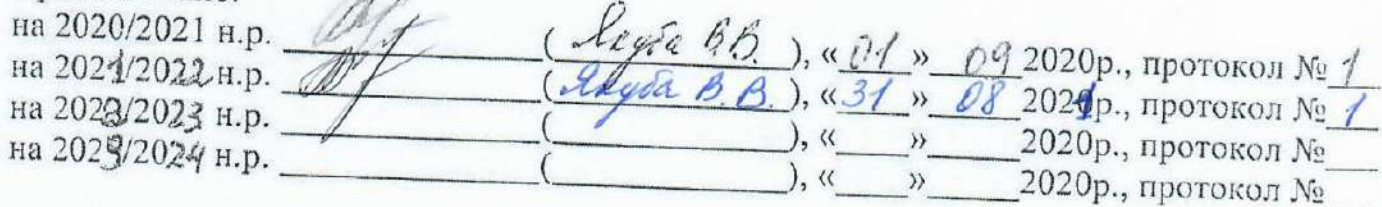 на 2020/2021 н.р. ( Якуба В.В. ), « 01 » 09 2020р., протокол № 1
на 2021/2022 н.р. ( Якуба В.В. ), « 31 » 08 2021р., протокол № 1
на 2022/2023 н.р. ( ), « » 2020р., протокол №
на 2023/2024 н.р. ( ), « » 2020р., протокол №